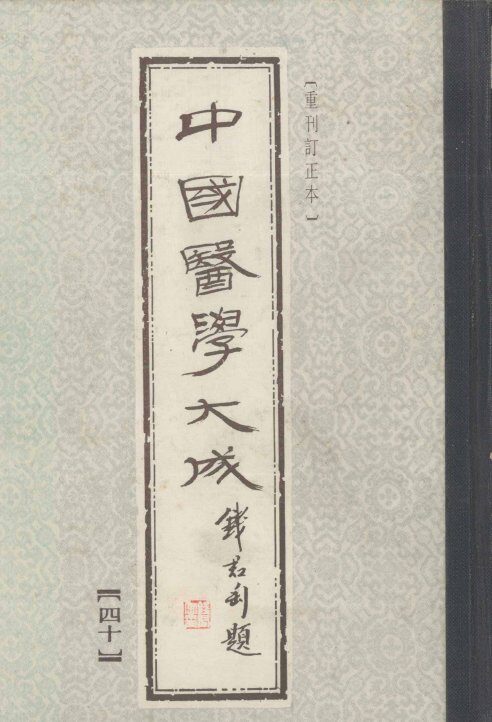 〔重刊訂正本〕
中國醫學大成
錢君匋題
【四十】